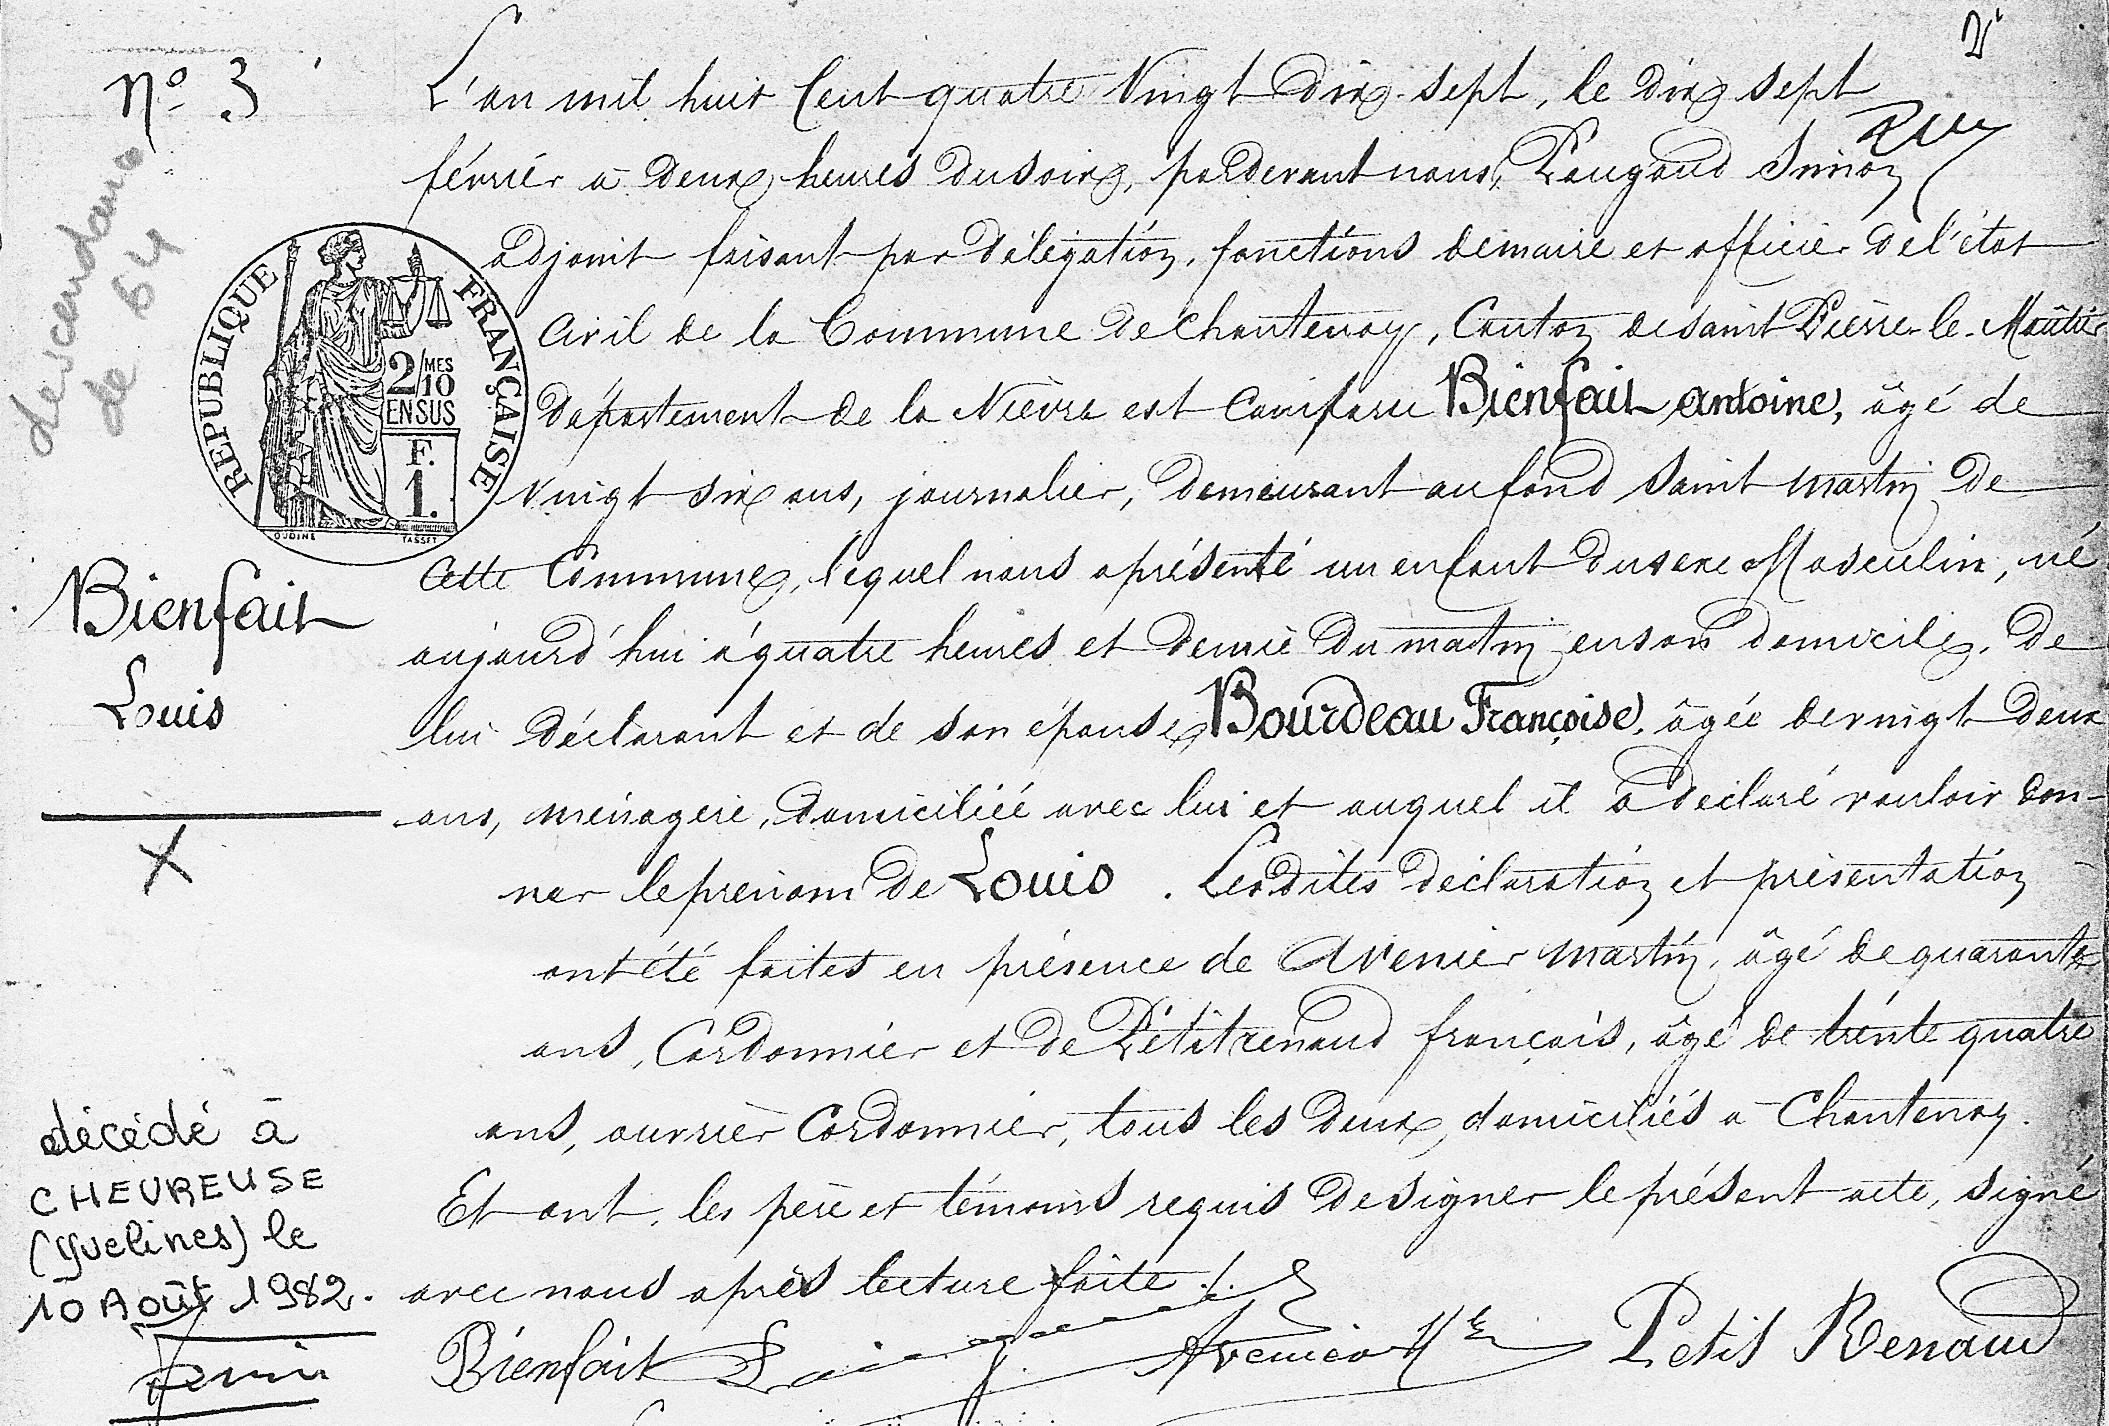 2
N° 3
L'an mil huit Cent quatre Vingt Dix-sept, le Dix sept
février à Deux heures du soir, par devant nous, Simon
adjoint faisant par délégation, fonctions de maire et officier de l'état
Civil de la Commune de Chantenay, Canton de saint Pierre-le-Moûtier
département de la Nièvre est Comparu Bienfait Antoine, âgé de
Vingt six ans, journalier, Demeurant au fond Saint Martin De
Cette Commune, lequel nous a présenté un enfant du sexe Masculin, né
aujourd'hui à quatre heures et demie Du matin en son domicile, De
lui Déclarant et de son épouse Bourdeau Françoise, âgée de vingt Deux
ans, ménagère, Domiciliée avec lui et auquel il a déclaré vouloir don-
ner le prénom De Louis. Les dites déclaration et présentation
ont été faites en présence de Avenier Martin, âgé de quarante
ans, Cordonnier et De Petitrenaud françois, âgé de trente quatre
ans, ouvrier Cordonnier, tous les Deux domiciliés à Chantenay.
Et ont, les père et témoins requis De signer le présent acte, signé
avec nous après lecture faite ./.
Bienfait Avenier Petit Renaud
descendance
de 64
REPUBLIQUE FRANÇAISE
2/MES
10
EN SUS
F.
1.
OUDINE TASSET
Bienfait
Louis
X
décédé à
CHEVREUSE
(Yvelines) le
10 Août 1982.